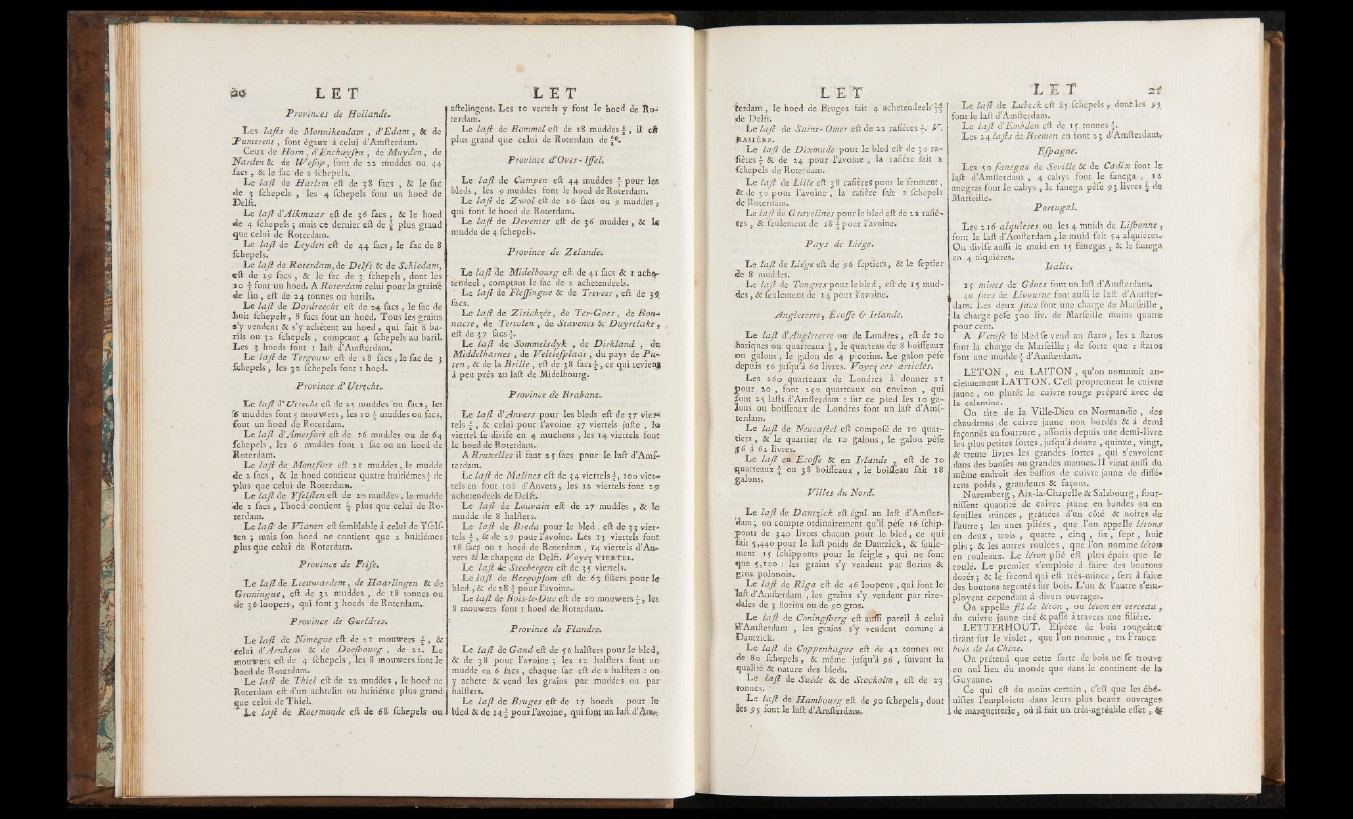 20 L E T
Provinces de Hollande.
Les lasts de Monnikendam, d'Edam, & de
Pumerent, sont égaux à celui d'Amsterdam.
Ceux de Horn, d'Enchuysen, de Muyden, de
Narden & de Wesop, sont de 22 muddes ou 44
sacs, & le sac de 2 schepels.
Le last de Harlem est de 38 sacs, & le sac
de 3 schepels, les 4 schepels font un hoed de
Delft.
Le last d'Alkmaar est de 36 sacs, & le hoed
de 4 schepels; mais ce dernier est de plus grand
que celui de Roterdam.
Le last de Leyden est de 44 sacs, le sac de 8
schepels.
Le last de Roterdam, de Delft & de Schiedam,
est de 29 sacs, & le sac de 3 schepels, dont les
10 ⅔ font un hoed. A Roterdam celui pour la graine
de lin, est de 24 tonnes ou barils.
Le last de Dordrecht est de 24 sacs, le sac de
huit schepels, 8 sacs font un hoed. Tous les grains
s'y vendent & s'y achetent au hoed, qui fait 8 ba-
rils ou 32 schepels, comptant 4 schepels au baril.
Les 3 hoeds font 1 last d'Amsterdam.
Le last de Tergouw est de 28 sacs, le sac de 3
schepels, les 32 schepels font 1 hoed.
Province d'Utrecht.
Le last d'Utrecht est de 25 muddes ou sacs, les
6 muddes font 5 mouwers, les 10 muddes ou sacs,
font un hoed de Roterdam.
Le last d'Amersfort est de 16 muddes ou de 64
schepels, les 6 muddes font 1 sac ou un hoed de
Roterdam.
Le last de Montfort est 21 muddes, le mudde
de 2 sacs, & le hoed contient quatre huitiémes de
plus que celui de Roterdam.
Le last d'Ysselsten est de 20 muddes, le mudde
de 2 sacs, l'hoed contient plus que celui de Ro-
terdam.
Le last de Vianen est semblable à celui de Yssels-
ten; mais son hoed ne contient que 2 huitiémes
plus que celui de Roterdam.
Province de Frise.
Le last de Leeuwardem, de Haarlingen & de
Groningue, est de 32 muddes, de 18 tonnes ou
de 36 loopers, qui font 3 hoeds de Roterdam.
Province de Gueldres.
Le last de Nimegue est de 21 mouwers, &
celui d'Arnhem & de Doesbourg, de 22. Le
mouwers est de 4 schepels, les 8 mouwers font le
hoed de Roterdam.
Le last de Thiel est de 22 muddes, le hoed de
Roterdam est d'un achtelin ou huitiéme plus grand
que celui de Thiel.
Le last de Roermonde est de 68 schepels ou
L E T
astelingens. Les 10 vertels y font le hoed de Ro-
terdam.
Le last de Bommel est de 18 muddes, il est
plus grand que celui de Roterdam de
Province d'Over-Issel.
Le last de Campen est 44 muddes pour les
bleds, les 9 muddes font le hoed de Roterdam.
Le last de Zwol est de 26 sacs ou 9 muddes,
qui font le hoed de Roterdam.
Le last de Deventer est de 36 muddes, & le
mudde de 4 schepels.
Province de Zelande.
Le last de Midelbourg est de 41 sacs & 1 ache-
tendeel, comptant le sac de 2 achetendeels.
Le last de Flessingue & de Treveer, est de 39
sacs.
Le last de Zirichzée, de Ter-Goes, de Bom-
nacre, de Tertolen, de Stavenes & Duyvelake,
est de 37 sacs.
Le last de Sommelsdyk, de Dirkland, de
Middelharnes, de Veltiesplaat, du pays de Pu-
ten, & de la Brille, est de 38 sacs, ce qui revient
à peu près au last de Midelbourg.
Province de Brabant.
Le last d'Anvers pour les bleds est de 37 vier-
tels, & celui pour l'avoine 37 viertels juste, la
viertel se divise en 4 muckens, les 14 viertels font
le hoed de Roterdam.
A Bruxelles il faut 25 sacs pour le last d'Ams-
terdam.
Le last de Malines est de 34 viertels, 100 vier-
tels en font 108 d'Anvers, les 12 viertels font 29
achetendeels de Delft.
Le last de Louvain est de 27 muddes, & le
mudde de 8 halsters.
Le last de Breda pour le bled, est de 33 vier-
tels, & de 29 pour l'avoine. Les 13 viertels font
18 sacs ou 1 hoed de Roterdam, 14 viertels d'An-
vers & le chapeau de Delft. Voyez VIERTEL.
Le last de Steebergen est de 35 viertels.
Le last de Bergopsom est de 63 sisters pour le
bled, & de 28 pour l'avoine.
Le last de Bois-le-Duc est de 20 mouwers, les
8 mouwers font 1 hoed de Roterdam.
Province de Flandre.
Le last de Gand est de 56 halsters pour le bled,
& de 38 pour l'avoine; les 12 halsters font un
mudde en 6 sacs, chaque sac est de 2 halsters: on
y achete & vend les grains par muddes ou par
halsters.
Le last de Bruges est de 17 hoeds pour le
bled & de 14 ½ pour l'avoine, qui font un last d'Ams-
L E T
terdam, le hoed de Bruges fait 4 achetendeels
de Delft.
Le last de Saint-Omer est de 22 rasières. V.
RASIERE.
Le last de Dixmude pour le bled est de 30 ra-
sières & de 24 pour l'avoine, la rasière fait 2
schepels de Roterdam.
Le last de Lille est 38 rasières pour le froment,
& de 30 pour l'avoine, la rasière fait 2 schepels
de Roterdam.
Le last de Gravelines pour le bled est de 22 rasiè-
res, & seulement de 18 pour l'avoine.
Pays de Liége.
Le last de Liége est de 96 septiers, & le septier
de 8 muddes.
Le last de Tongres pour le bled, est de 15 mud-
des, & seulement de 14 pour l'avoine.
Angleterre, Ecosse & Irlande.
Le last d'Angleterre ou de Londres, est de 10
bariques ou quarteaux, le quarteau de 8 boisseaux
ou galons, le galon de 4 picotins. Le galon pese
depuis 56 jusqu'à 60 livres. Voyez ces articles.
Les 260 quarteaux de Londres à donner 21
pour 20, sont 250 quarteaux ou environ, qui
font 25 lasts d'Amsterdam: sur ce pied les 10 ga-
lons ou boisseaux de Londres font un last d'Ams-
terdam.
Le last de Neucastel est composé de 10 quar-
tiers, & le quartier de 10 galons, le galon pése
56 à 62 livres.
Le last en Ecosse & en Irlande, est de 10
quarteaux ou 38 boisseaux, le boisseau fait 18
galons.
Villes du Nord.
Le last de Dantzick est égal au last d'Amster-
dam; on compte ordinairement qu'il pese 16 schip-
ponts de 340 livres chacun pour le bled, ce qui
fait 5,440 pour le last poids de Dantzick, & seule-
ment 15 schipponts pour le seigle, qui ne font
que 5,100: les grains s'y vendent par florins &
gros polonois.
Le last de Riga est de 46 loopens, qui font le
last d'Amsterdam, les grains s'y vendent par rixe-
dales de 3 florins ou de 90 gros.
Le last de Coningsberg est aussi pareil à celui
d'Amsterdam, les grains s'y vendent comme à
Dantzick.
Le last de Coppenhague est de 42 tonnes ou
de 80 schepels, & même jusqu'à 96, suivant la
qualité & nature des bleds.
Le last de Suéde & de Stockolm, est de 23
tonnes.
Le last de Hambourg est de 90 schepels, dont
les 95 font le last d'Amsterdam.
L E T 21
Le last de Lubeck est 85 schepels, dont les 95
font le last d'Amsterdam.
Le last d'Embden est de 15 tonnes.
Les 24 lasts de Bremen en font 23 d'Amsterdam.
Espagne.
Les 50 fanegas de Seville & de Cadix font le
last d'Amsterdam, 4 cahys font le fanega, 12
anegras font le cahys, le fanega pése 93 livres de
Marseille.
Portugal.
Les 216 alquieres ou les 4 muids de Lisbonne,
font le last d'Amsterdam, le muid fait 54 alquieres.
On divise aussi le muid en 15 fanegas, & le fanega
en 4 alquières.
Italie.
25 mines de Gênes font un last d'Amsterdam.
40 sacs de Livourne font aussi le last d'Amster-
dam. Les deux sacs font une charge de Marseille,
la charge pese 300 liv. de Marseille moins quatre
pour cent.
A Venise le bled se vend au staro, les 2 staros
font la charge de Marseille; de sorte que 2 staros
font une mudde d'Amsterdam.
LETON, ou LAITON, qu'on nommoit an-
ciennement LATTON. C'est proprement le cuivre
jaune, ou plutôt le cuivre rouge préparé avec de
la calamine.
On tire de la Ville-Dieu en Normandie, des
chaudrons de cuivre jaune non bordés & à demi
façonnés en fourrure, assortis depuis une demi-livre
les plus petites sortes, jusqu'à douze, quinze, vingt,
& trente livres les grandes sortes, qui s'envoient
dans des banses ou grandes mannes. Il vient aussi du
même endroit des bassins de cuivre jaune de diffé-
rens poids, grandeurs & façons.
Nuremberg, Aix-la-Chapelle & Salzbourg, four-
nissent quantité de cuivre jaune en bandes ou en
feuilles minces, grattées d'un côté & noires de
l'autre; les unes pliées, que l'on appelle létons
en deux, trois, quatre, cinq, six, sept, huit
plis; & les autres roulées, que l'on nomme léton
en rouleaux. Le léton plié est plus épais que le
roulé. Le premier s'emploie à faire des boutons
dorés; & le second qui est très-mince, sert à faire
des boutons argentés sur bois. L'un & l'autre s'em-
ployent cependant à divers ouvrages.
On appelle fil de léton, ou léton en cerceau,
du cuivre jaune tiré & passé à travers une filière.
LETTERHOUT. Espéce de bois rougeâtre
tirant sur le violet, que l'on nomme, en France
bois de la Chine.
On prétend que cette sorte de bois ne se trouve
en nul lieu du monde que dans le continent de la
Guyanne.
Ce qui est du moins certain, c'est que les ébé-
nistes l'emploient dans leurs plus beaux ouvrages
de marquetterie, où il fait un très-agréable effet, &